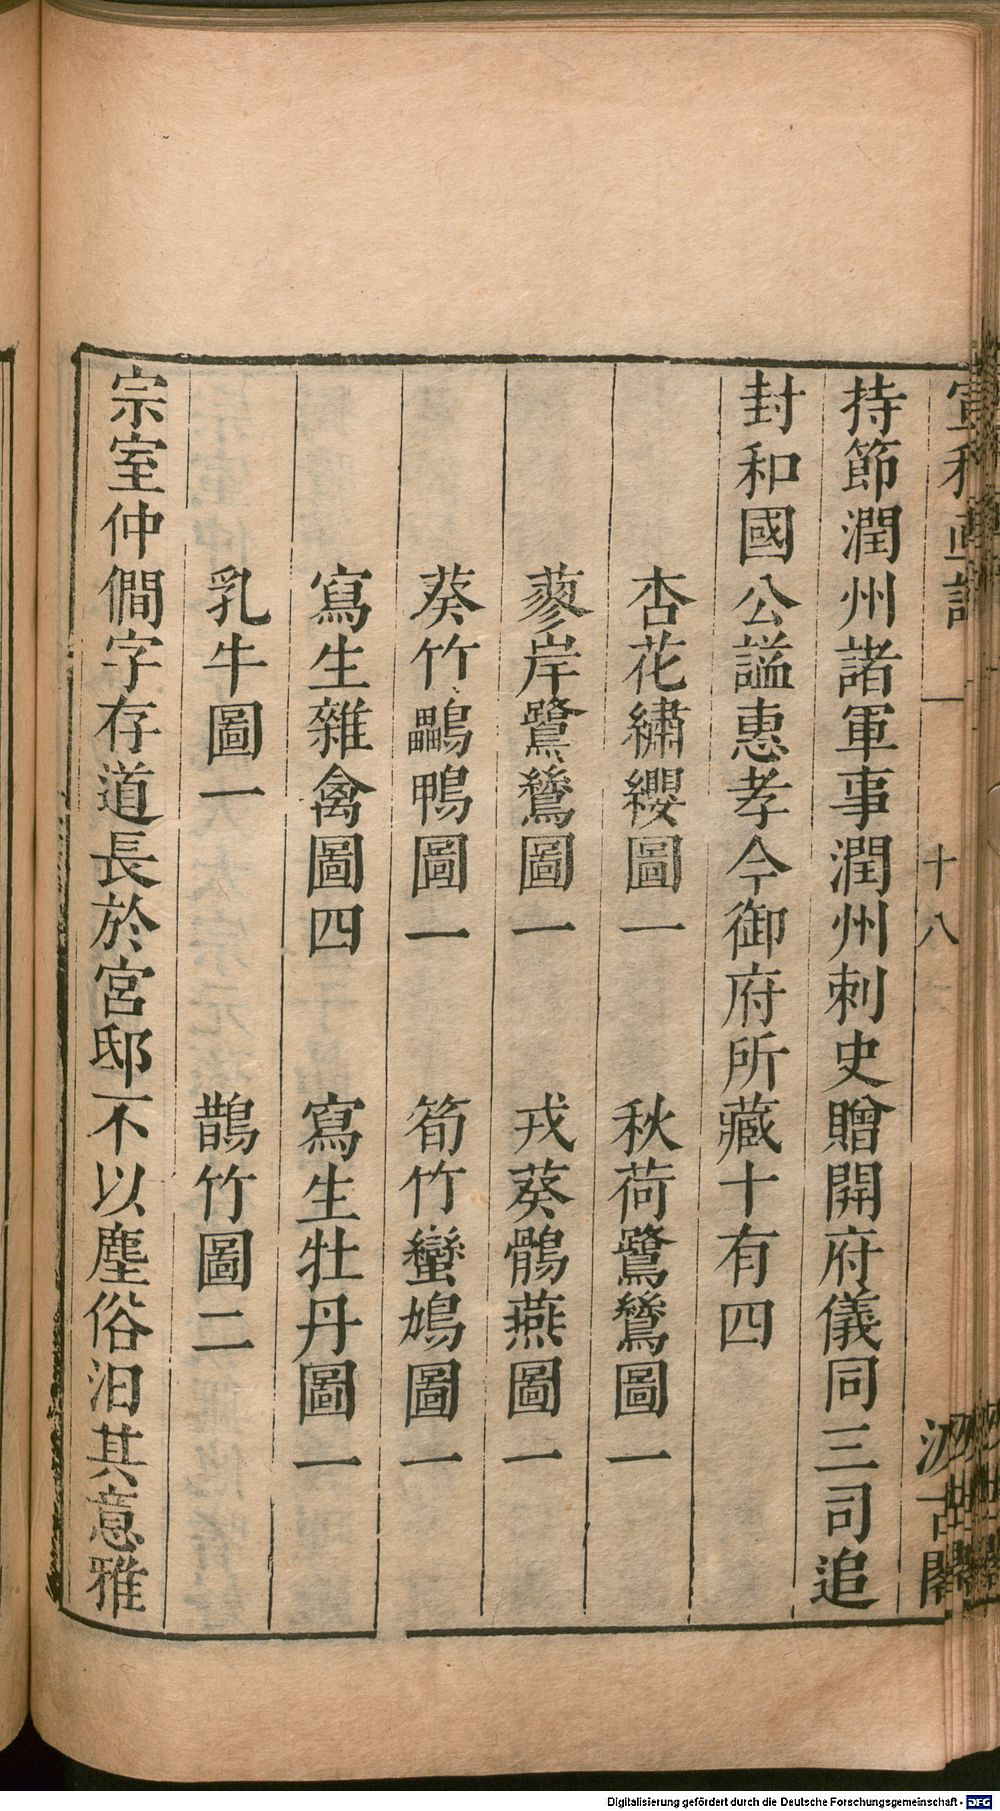 宣和画譜 十八 汲古閣
持節潤州諸軍事潤州刺史贈開府儀同三司追
封和國公謚惠孝今御府所藏十有四
杏花繡纓圖一 秋荷鷺鷥圖一
蓼岸鷺鷥圖一 戎葵鶻燕圖一
葵竹鸓鴨圖一 筍竹蠻鳩圖一
寫生雜禽圖四 寫生牡丹圖一
乳牛圖一 鵲竹圖二
宗室仲僩字存道長於宮邸不以塵俗汩其意雅
Digitalisierung gefördert durch die Deutsche Forschungsgemeinschaft - DFG